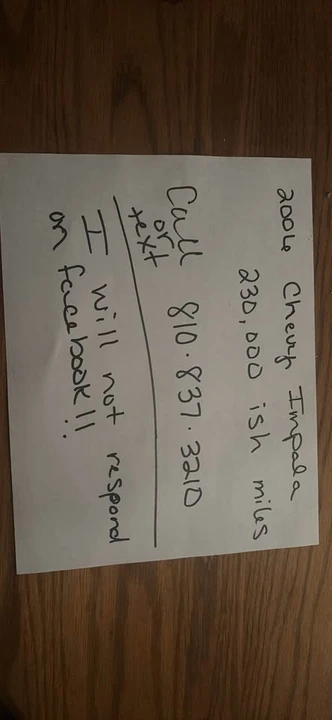 2006 Chevy Impala
230,000 ish miles
Call or text 810.837.3210
I will not respond
on facebook!!